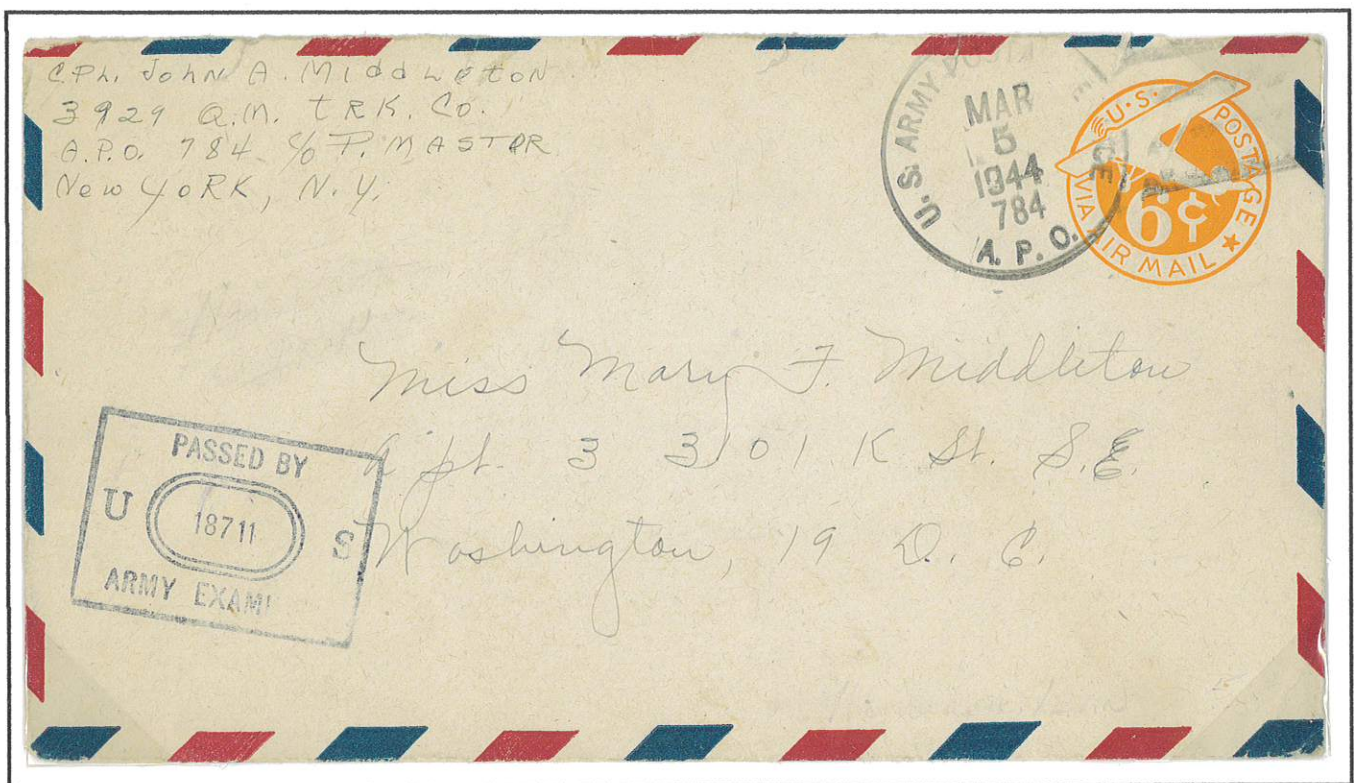 CPL. John A. Middleton
3929 Q.M. TRK. Co.
A.P.O. 784 c/o P. MASTOR
New YORK, N.Y.
U.S. ARMY POSTAL
MAR
5
1944
784
A. P. O.
U.S. POSTAGE
6¢
VIA AIR MAIL
Miss Mary F. Middleton
Apt. 3 3101 K St. S.E.
Washington, 19 D. C.
PASSED BY
U 18711 S
ARMY EXAMI